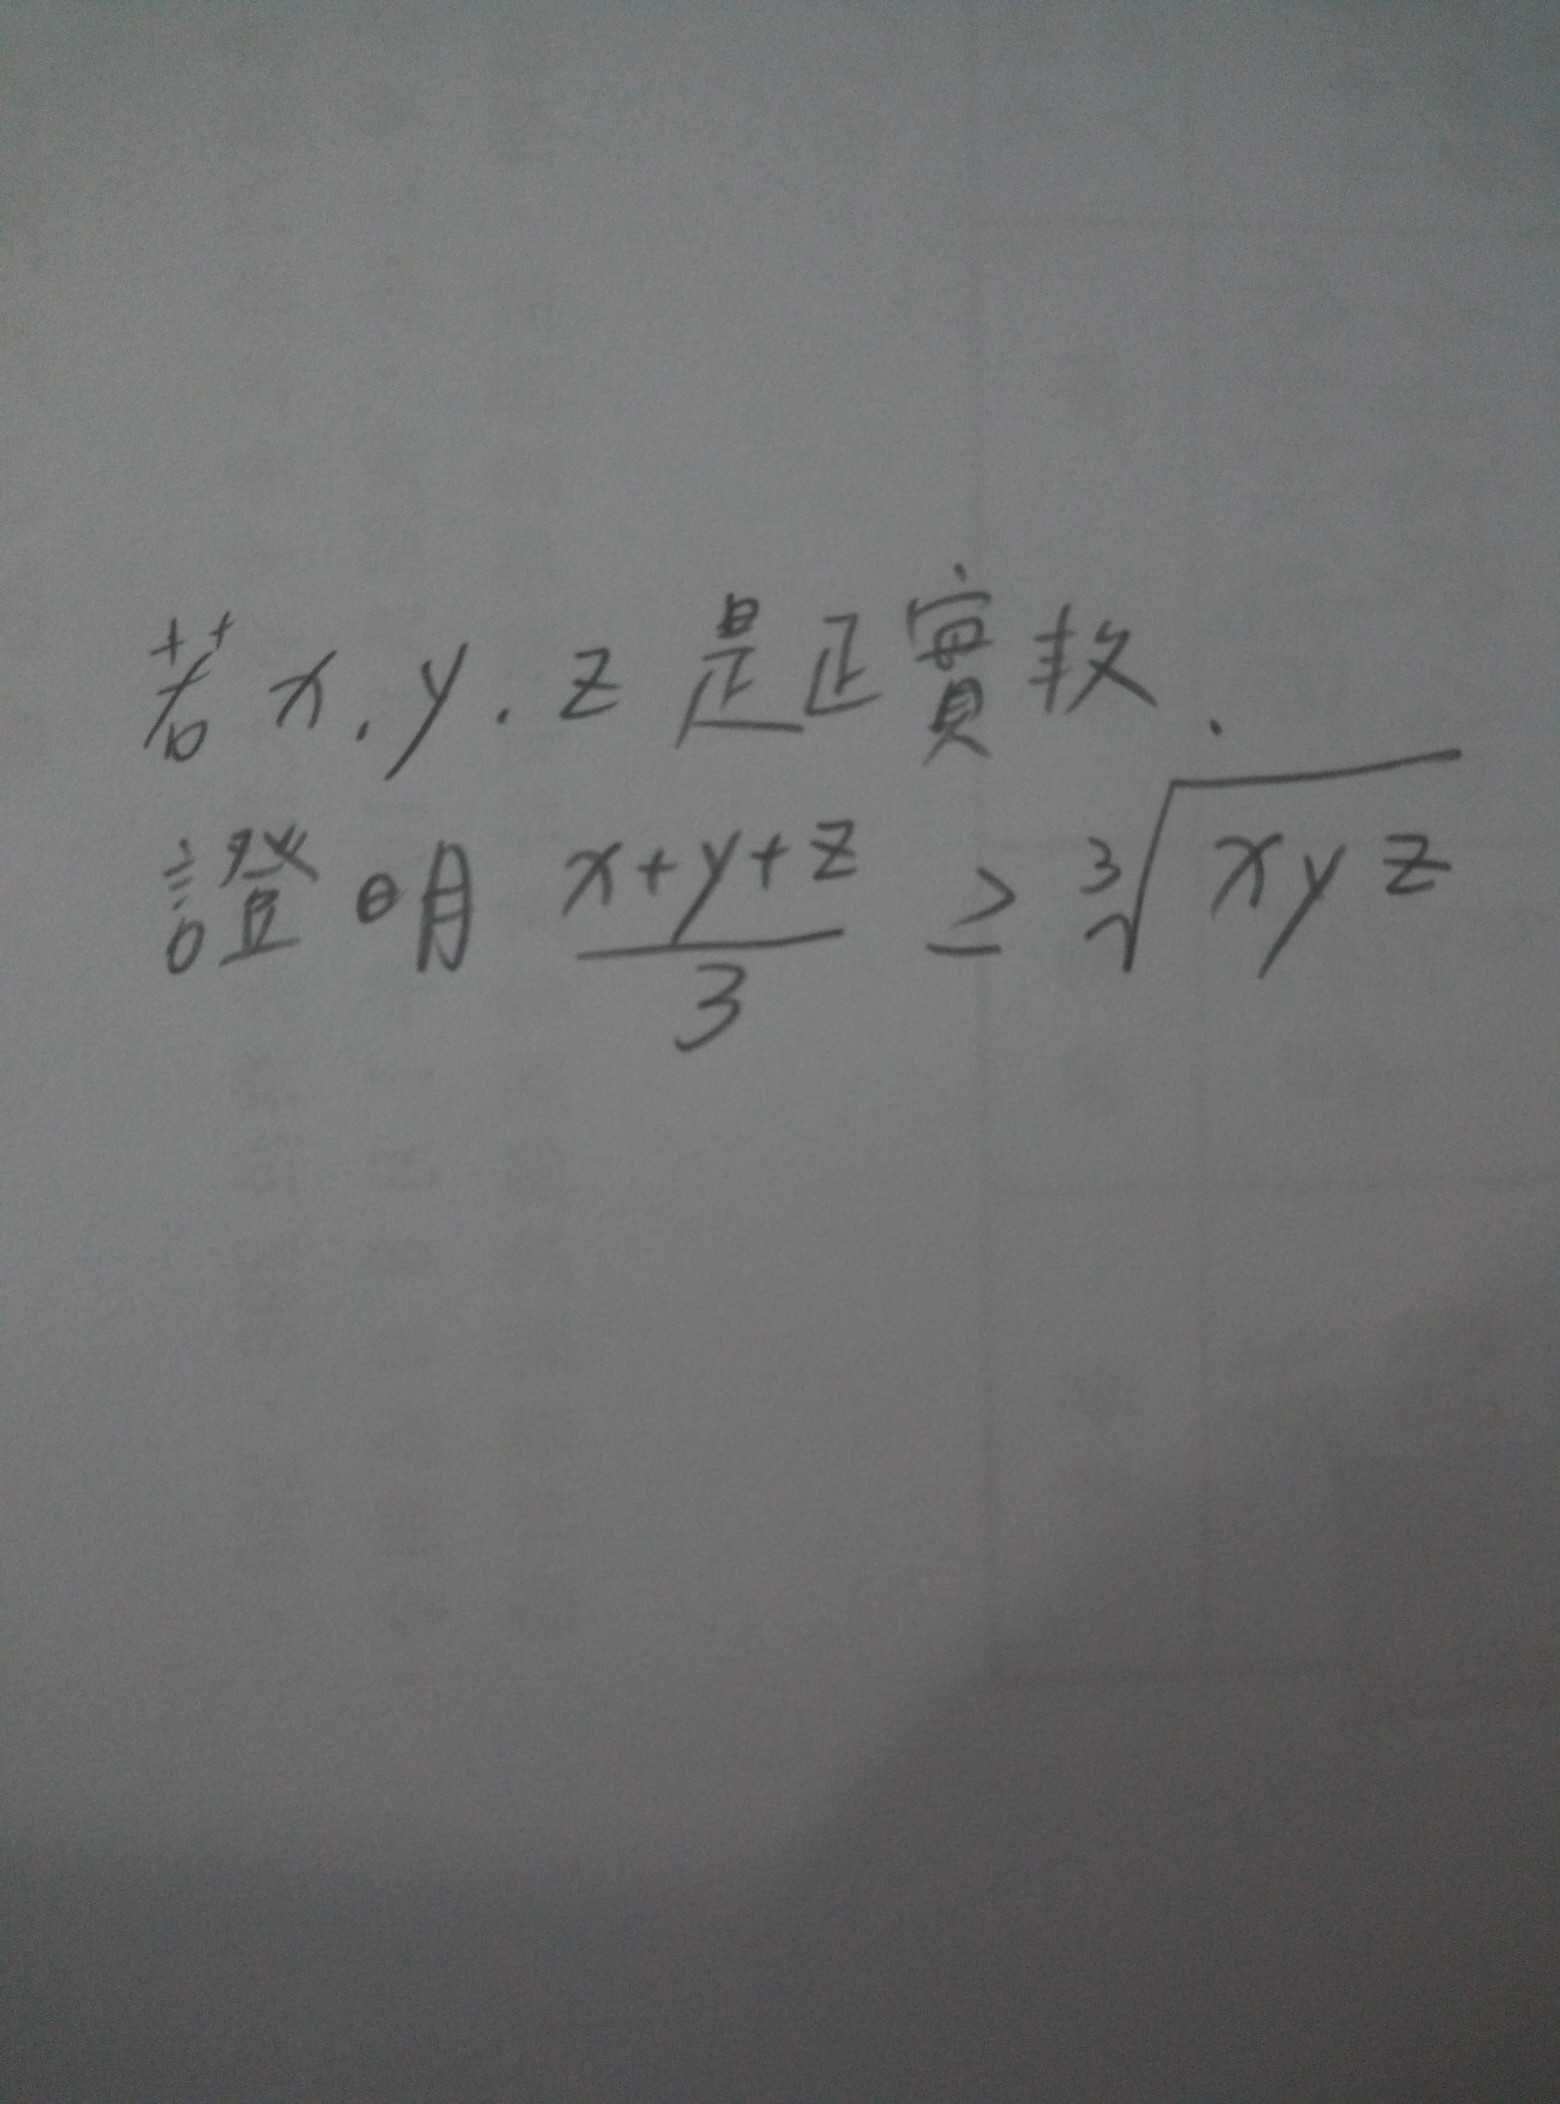 若 x, y, z 是正實数.
證明 \frac{x+y+z}{3} ≥ \sqrt[3]{xyz}